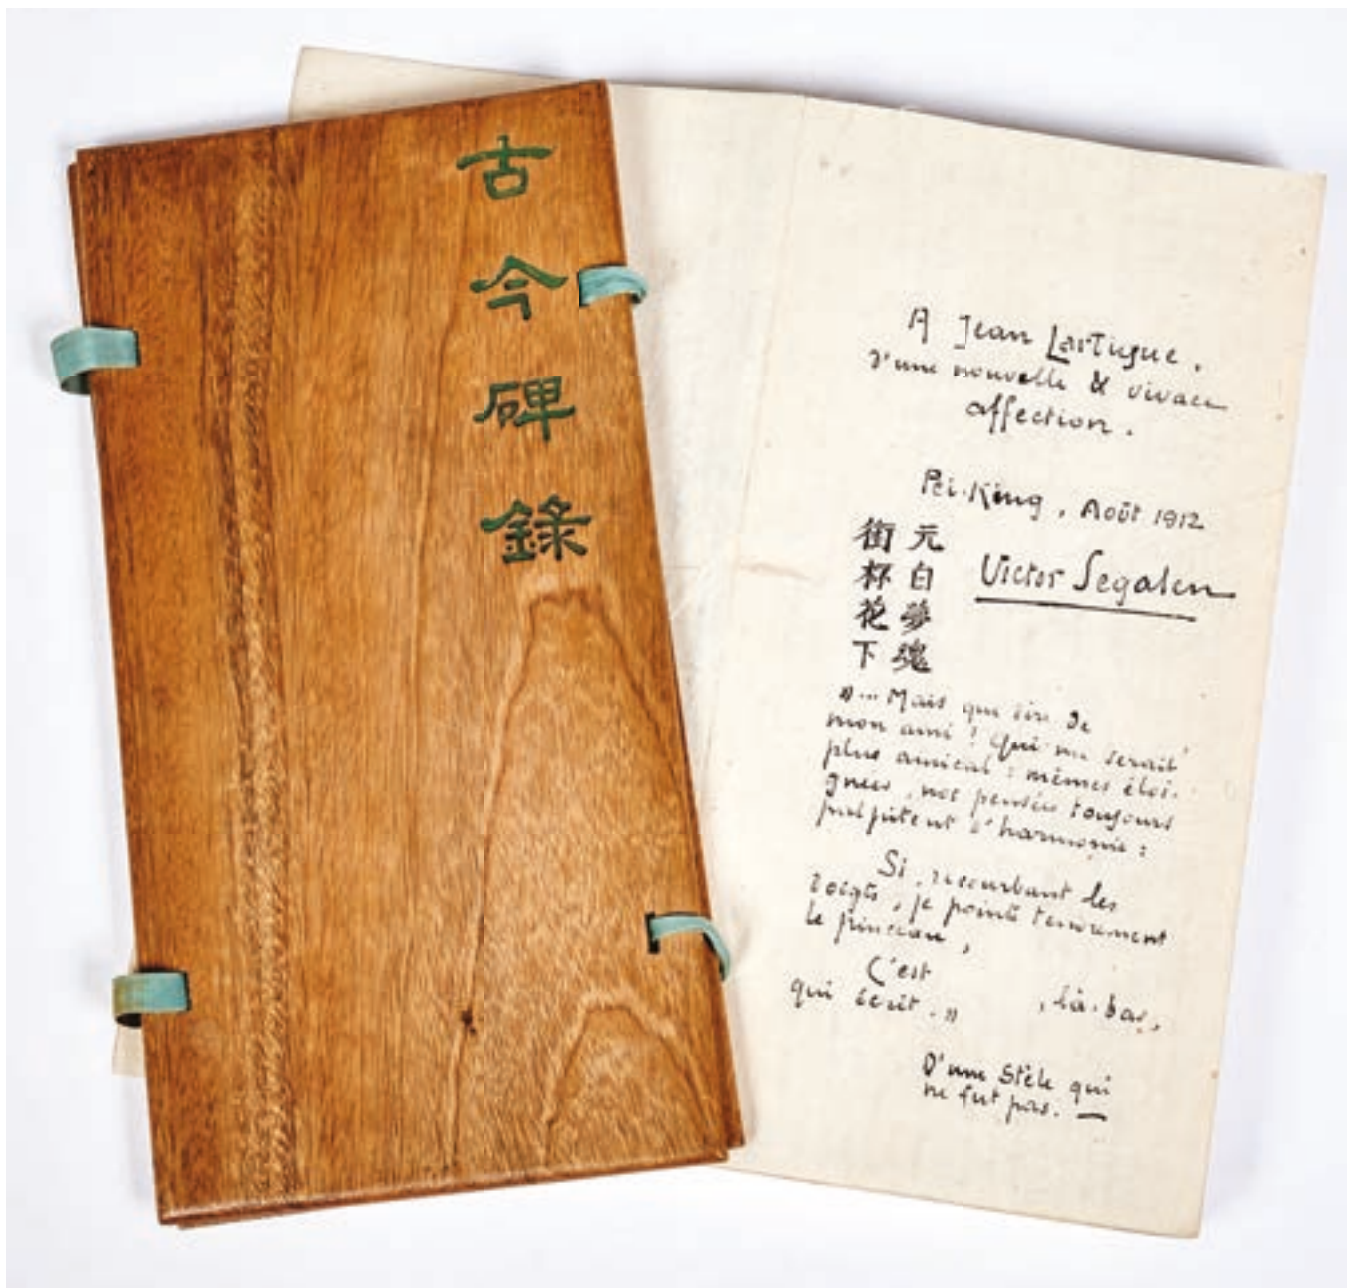 古今碑錄
A Jean Lartigue.
d'une nouvelle & vivace
affection.
Pei-King, Août 1912
Victor Segalen
元白夢魂
街杯花下
»... Mais que dire de
mon ami ! Qui me serait
plus amical : mêmes éloi-
gnées, nos pensées toujours
palpitent d'harmonie :
Si, recourbant les
doigts, je pointe
le pinceau,
C'est , là-bas,
qui écrit. »
D'une Stèle qui
ne fut pas. —